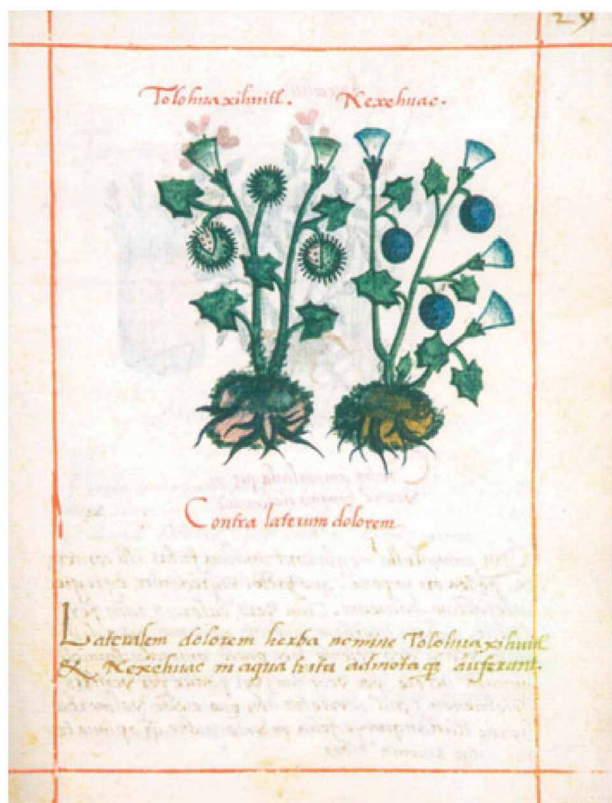 29
Tolohuaxihuitl. Nexehuac.
Contra laterum dolorem
Lateralem dolorem herba nomine Tolohuaxihuitl
& Nexehuac in aqua trita admotaq auferunt.